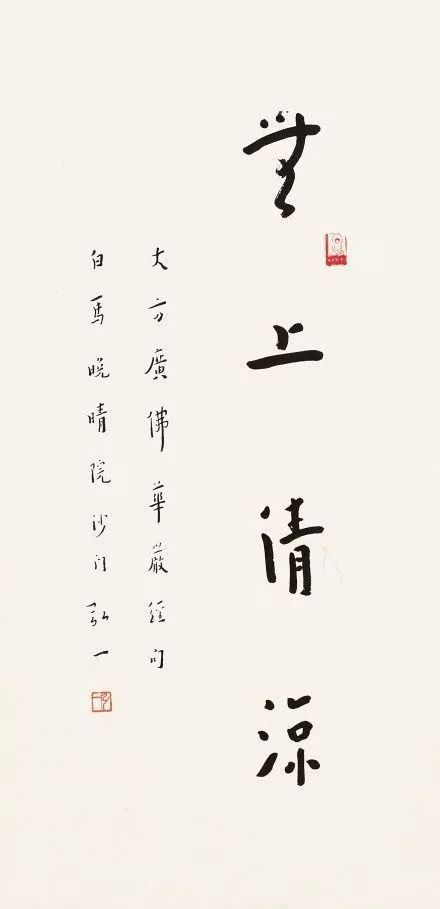 無上清涼
大方廣佛華嚴經句
白馬晚晴院沙门弘一